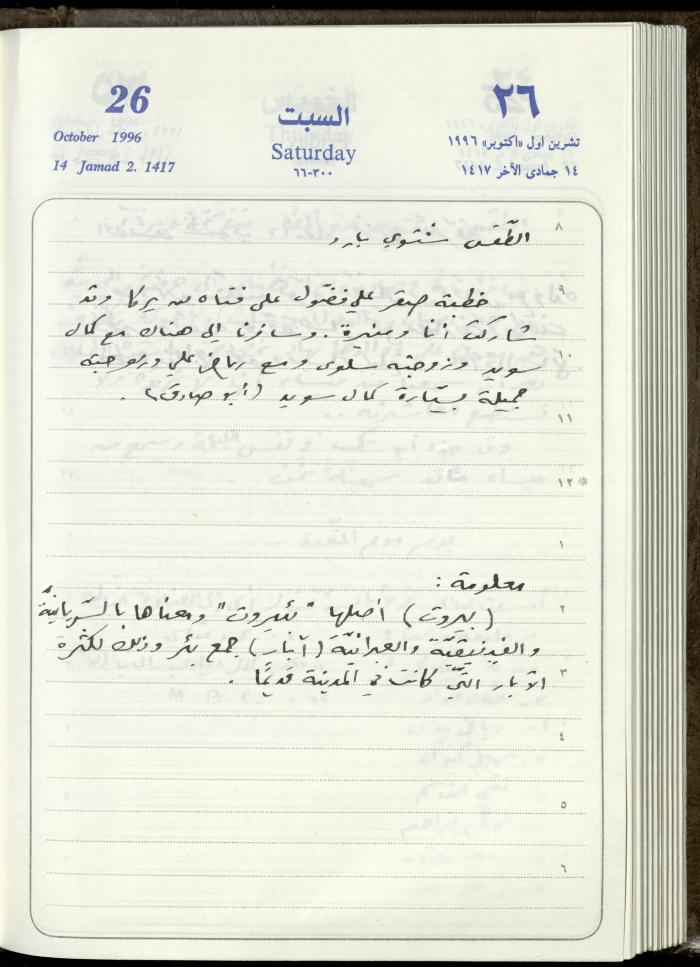 26
October 1996
14 Jamad 2. 1417
السبت
Saturday
٦٦-٣٠٠
٢٦
تشرين اول «اكتوبر» ١٩٩٦
١٤ جمادى الآخر ١٤١٧
٨
الطّقس شتوي بارد
٩
خطبة صقر علي فضّول على فتاة من يركا وقد
شاركت أنا ومنيرة. وسافرنا إلى هناك مع كمال
١٠
سويد وزوجته سلوى ومع رياض علي وزوجته
جميلة بسيّارة كمال سويد (أبو صادق).
١١
١٢
١
معلومة :
٢
(بيروت) أصلها "بئيروت" ومعناها بالسّريانيّة
والفينيقيّة والعبرانيّة (آبار) جمع بئر وذلك لكثرة
٣
الآبار التّي كانت في المدينة قديمًا.
٤
٥
٦